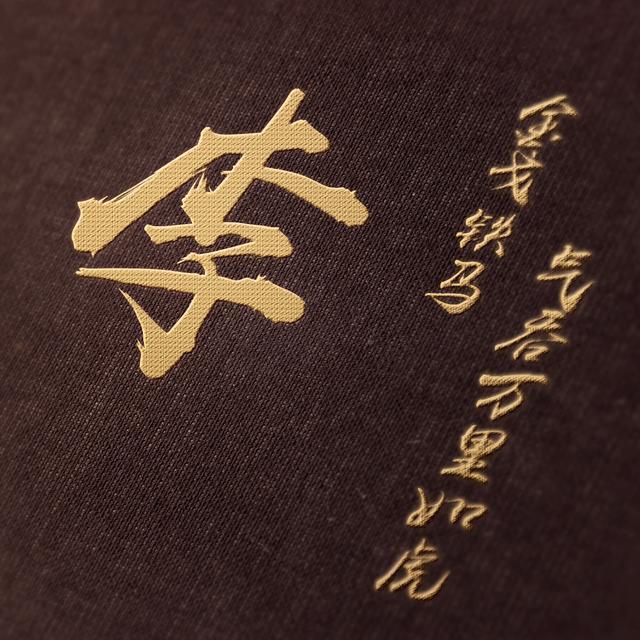 李
金戈铁马
气吞万里如虎